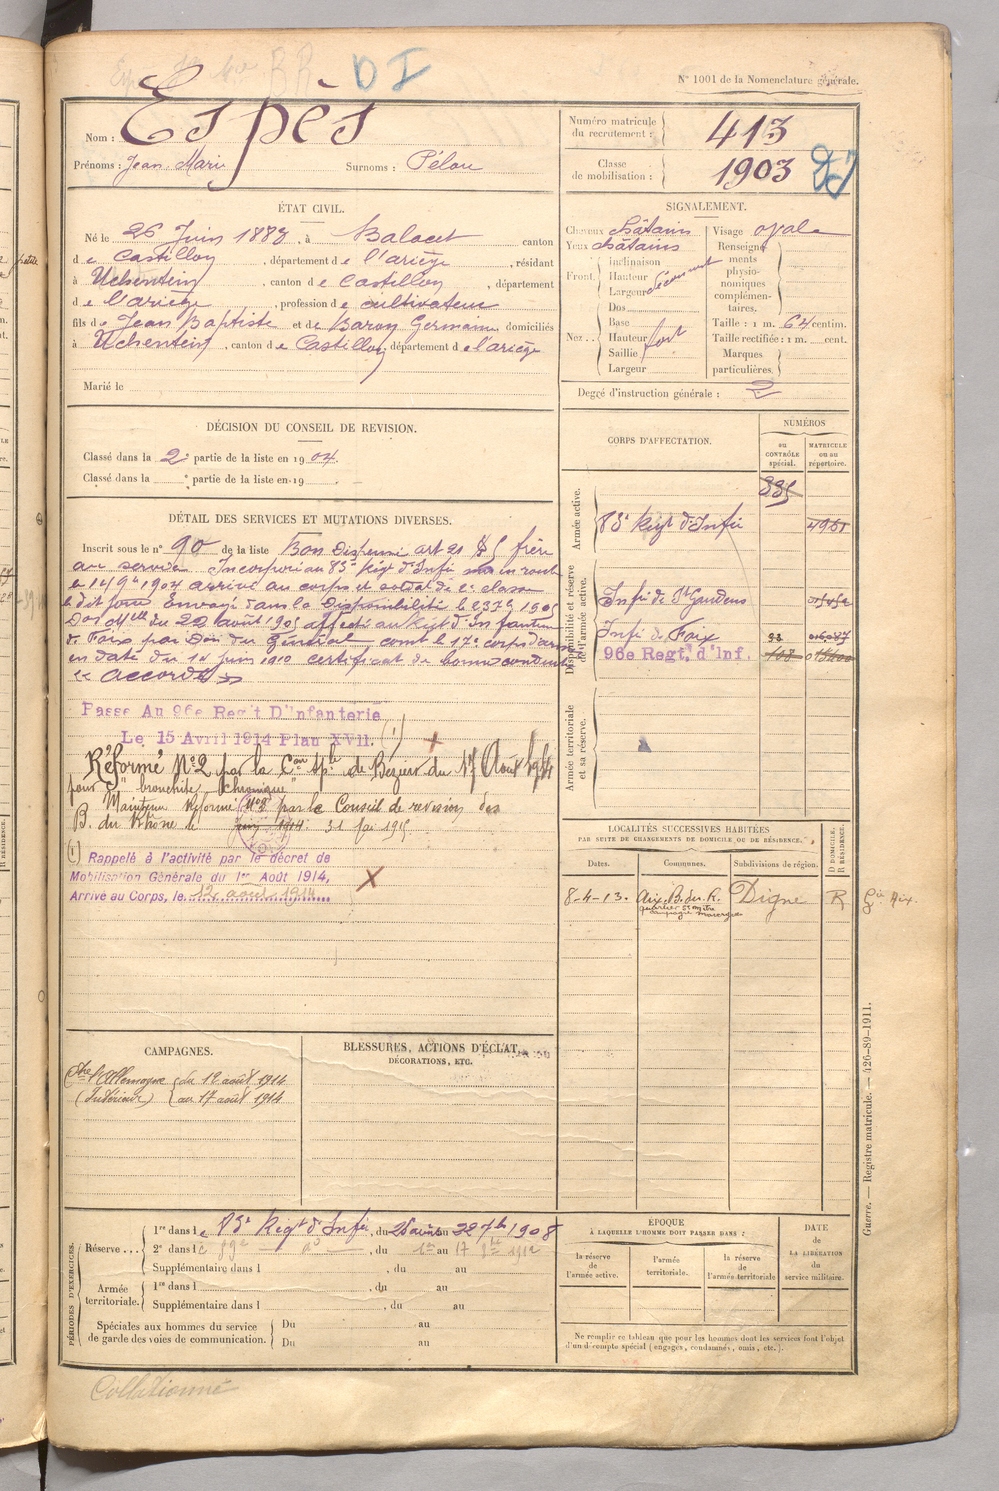 DI
N° 1001 de la Nomenclature générale.
Nom : Espès
Prénoms : Jean Marie Surnoms : Pélou
Numéro matricule du recrutement : 413
Classe de mobilisation : 1903
ÉTAT CIVIL.
Né le 26 Juin 1883, à Balacet canton
de Castillon, département de l'ariège, résidant
à Uchentein, canton de Castillon, département
de l'ariège, profession de cultivateur
fils de Jean Baptiste et de Baron Germaine domiciliés
à Uchentein, canton de Castillon, département de l'ariège
Marié le
SIGNALEMENT.
Cheveux châtains
Yeux châtains
Front. Inclinaison
Hauteur
Largeur
Nez .. Dos
Base
Hauteur fort
Saillie
Largeur
Visage ovale
Renseignements physionomiques complémentaires.
Taille : 1 m. 64 centim.
Taille rectifiée : 1 m. cent.
Marques particulières.
Degré d'instruction générale : 2
DÉCISION DU CONSEIL DE REVISION.
Classé dans la 2e partie de la liste en 1904.
Classé dans la e partie de la liste en 19 .
CORPS D'AFFECTATION.
NUMÉROS
au CONTRÔLE spécial.
MATRICULE ou au répertoire.
Armée active.
83e Regt d'Infie
Disponibilité et réserve de l'armée active.
Infie de St Gaudens
Infie de Foix
96e Regt. d'Inf.
Armée territoriale et sa réserve.
DÉTAIL DES SERVICES ET MUTATIONS DIVERSES.
Inscrit sous le n° 90 de la liste Bon Dispensé art 21 frère
au service Incorporé au 83e Regt d'Infie en route
arrivé au corps et soldat de 2e classe
le dit jour Envoyé dans la Disponibilité le
affecté au Régt d'infanterie
de Foix par Don du Général comt le 17e corps d'armée
en date du 10 Juin 1910 certificat de bonne conduite
accordé
Passé Au 96e Regt D'Infanterie
Le 15 Avril 1914 Plan XVII. (1)
Réformé N°2 par la Con Sple de Béziers du 17 Août 1914
pour "bronchite chronique"
Maintenu Réformé N°2 par le Conseil de revision des
B. du Rhône le
(1) Rappelé à l'activité par le décret de
Mobilisation Générale du 1er Août 1914,
Arrivé au Corps, le 12 août 1914
LOCALITÉS SUCCESSIVES HABITÉES
PAR SUITE DE CHANGEMENTS DE DOMICILE OU DE RÉSIDENCE.
Dates. Communes. Subdivisions de région. D DOMICILE, R RÉSIDENCE.
8-4-13. Aix. B. du R. Digne R
CAMPAGNES.
Ctre l'Allemagne du 12 août 1914
(Intérieur) au 17 août 1914
BLESSURES, ACTIONS D'ÉCLAT,
DÉCORATIONS, ETC.
PÉRIODES D'EXERCICES.
Réserve ... 1re dans le 83e Regt d'Infie, du au 1908
2e dans le , du au
Supplémentaire dans l , du au
Armée territoriale. 1re dans l du au
Supplémentaire dans l , du au
Spéciales aux hommes du service de garde des voies de communication. Du au
Du au
ÉPOQUE
À LAQUELLE L'HOMME DOIT PASSER DANS :
la réserve de l'armée active.
l'armée territoriale.
la réserve de l'armée territoriale
DATE de LA LIBÉRATION du service militaire.
Ne remplir ce tableau que pour les hommes dont les services font l'objet
d'un décompte spécial (engagés, condamnés, omis, etc.).
Guerre. — Registre matricule. — 426-89-1911.
Collationné